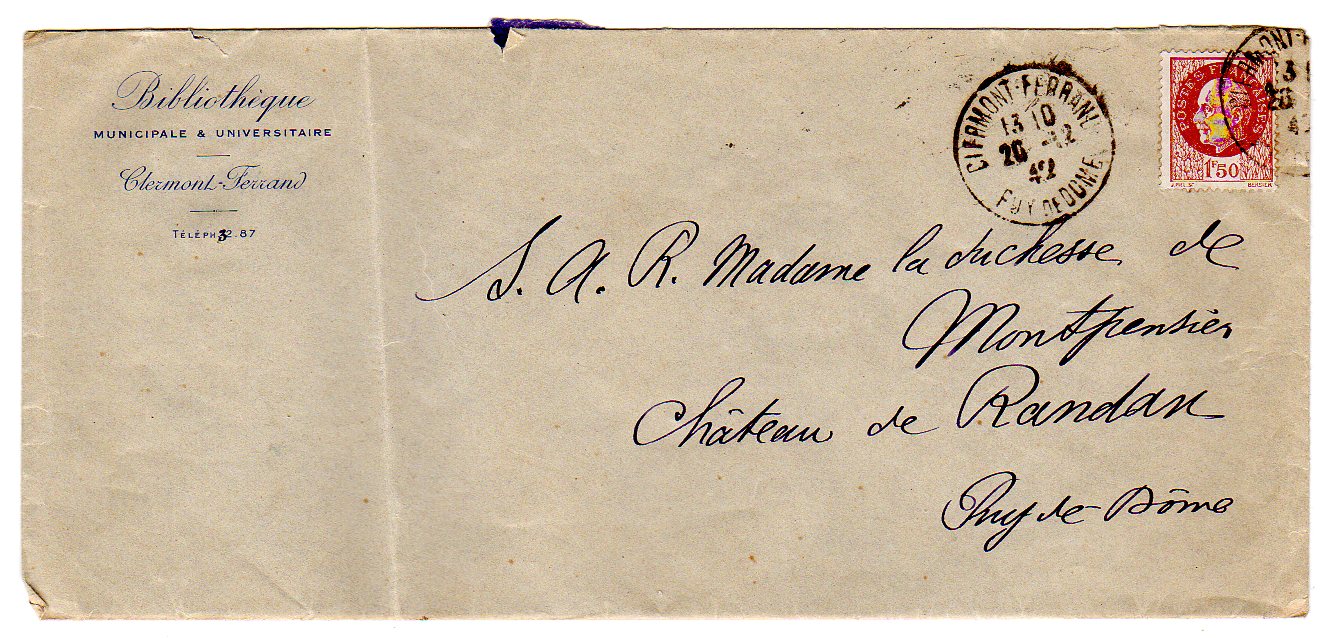 Bibliothèque
MUNICIPALE & UNIVERSITAIRE
Clermont-Ferrand
TÉLÉPH 32-87
CLERMONT-FERRAND
13 10
26 -12
42
PUY DE DOME
POSTES FRANÇAISES
1F50
BERSIER
S. A. R. Madame la duchesse de
Montpensier
Château de Randan
Puy de Dôme